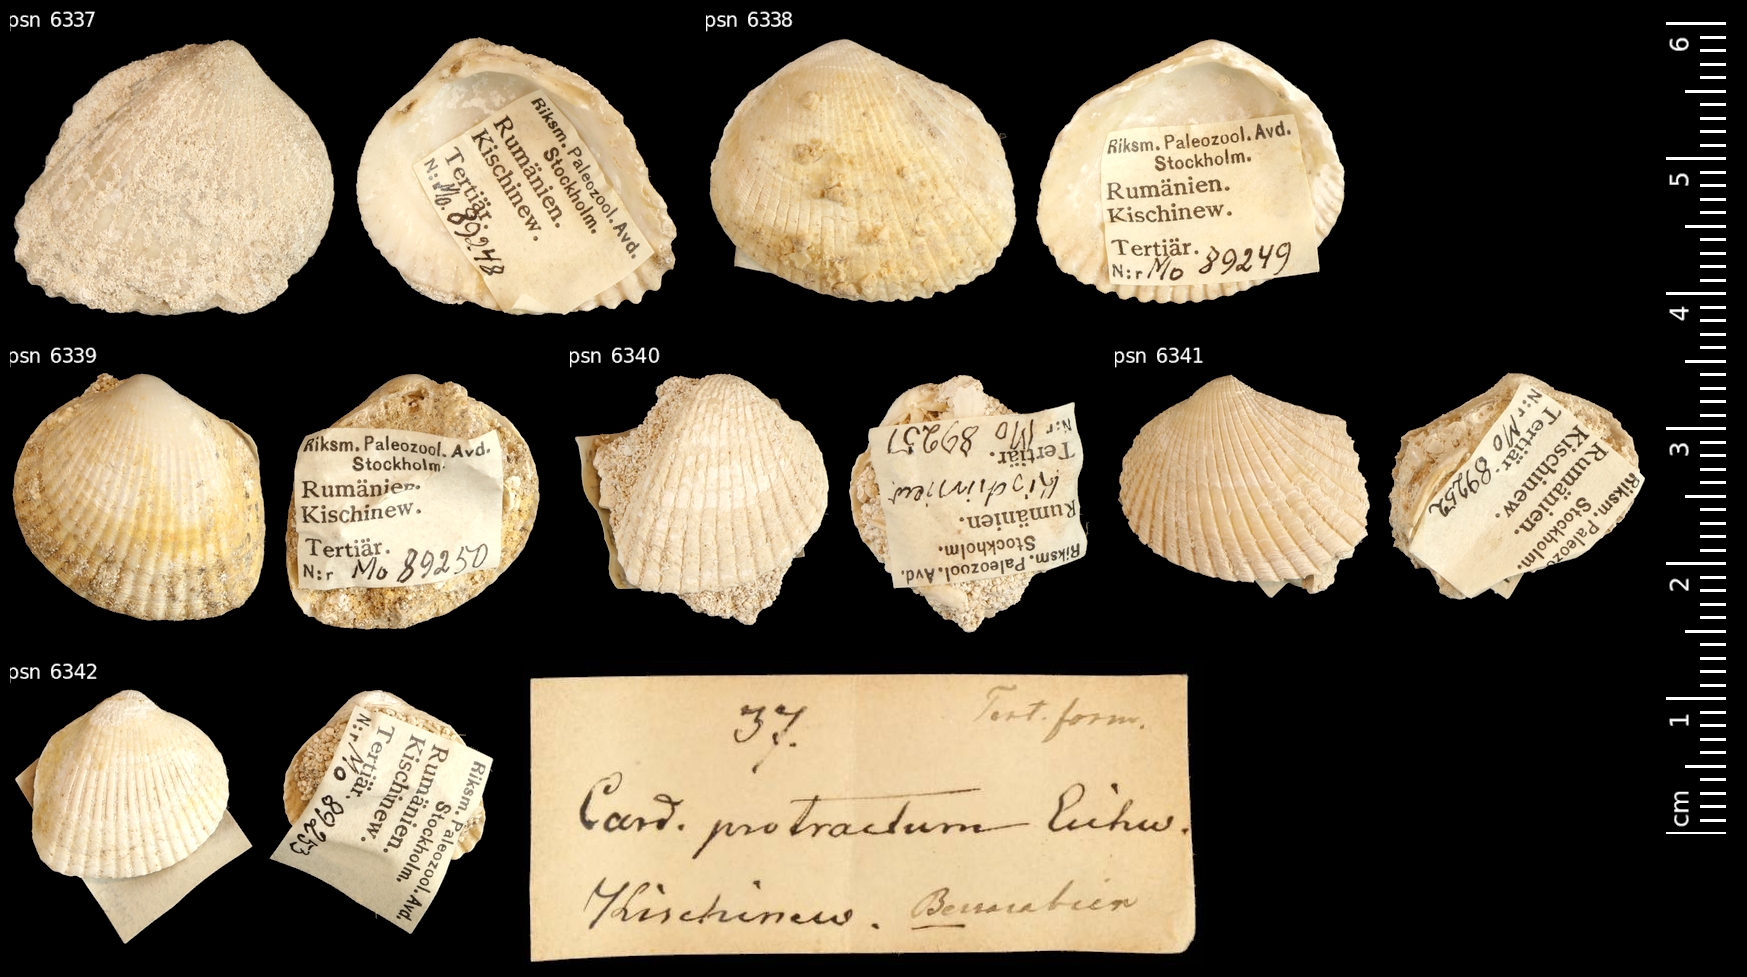 psn 6337
Riksm. Paleozool. Avd.
Stockholm.
Rumänien.
Kischinew.
Tertiär.
N:r Mo. 89248
psn 6338
Riksm. Paleozool. Avd.
Stockholm.
Rumänien.
Kischinew.
Tertiär.
N:r Mo 89249
psn 6339
Riksm. Paleozool. Avd.
Stockholm.
Rumänien.
Kischinew.
Tertiär.
N:r Mo 89250
psn 6340
Riksm. Paleozool. Avd.
Stockholm.
Rumänien.
Kischinew
Tertiär.
N:r Mo 89251
psn 6341
Riksm. Paleozo
Stockholm.
Rumänien.
Kischinew.
Tertiär.
N:r Mo 89252
psn 6342
Riksm. Paleozool. Avd.
Stockholm.
Rumänien.
Kischinew.
Tertiär.
N:r Mo 89253
37.
Tert. form.
Card. protractum Eichw.
Kischinew. Bessarabien
6
5
4
3
2
1
cm